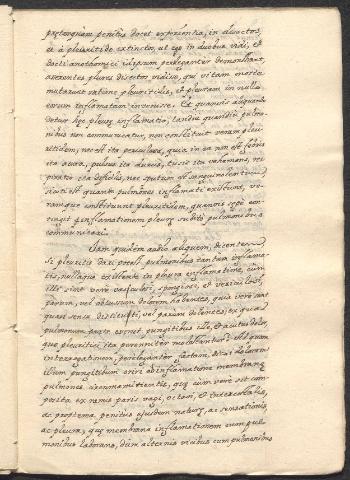 præterquam penitus docet experientia, in dissectis
ex à pleuritide extinctis, ut ego in duobus vidi, et
docti anathomici idipsum perlegantur demonstrant,
asserentes plures dissectos vidisse, qui vitam morte
mutarunt ratione pleuritidis, et pleuram in nullo
eorum inflamatam invenisse. Et quamvis aliquando
detur hæc pleuræ inflamatio, tamdiu quamdiu pulmo-
nibus non communicatur, non constituit veram pleu-
ritidem, nec est ita periculosa, quia in ea non est febris
ita acuta, pulsus ita durus, tussis ita vehemens, res-
piratio ita dificilis, nec sputum est sanguinolentum
sicuti est quando pulmones inflamati existunt, ve-
ramque constituunt pleuritidem, quamvis sæpe con-
tingit inflamationem pleuræ subito pulmonibus
communicari.
Jam quidem audio aliquem, dicentem
si pleuritis dari potest pulmonibus tantum inflama-
tis, nullaque existente in pleura inflamatione, cum
ille sint vere vasculosi, spongiosi, et vesiculosi,
parum, vel obtussum dolorem habentes, quia vere sunt
quasi sensu destituti, vel parum dolentes, ex qua
pulmonum parte erunt pungitibus ille, et acutus dolor,
quo pleuritici, ita perenniter molestantur? Ad quam
interrogationem, perdiligenter factam, dicas dolorem
illum pungitibum oriri ab inflamatione membranæ
pulmones circummitientis, quæ cum vere sit com-
posita ex ramis paris vagi, octavi, et intercostalis,
ac propterea penitus ejusdem naturæ, ac sensationis
ac pleura; quæ membrana inflamationem cum pul-
monibus laborans, dum alternis vicibus cum pulmonibus